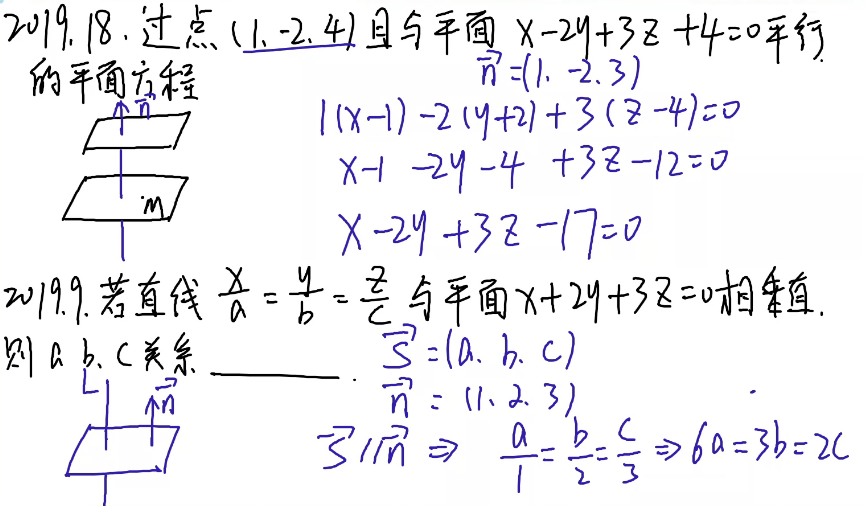 2019.18.过点(1.-2.4)且与平面 x-2y+3z+4=0平行
的平面方程
n⃗=(1.-2.3)
n⃗
1(x-1)-2(y+2)+3(z-4)=0
x-1 -2y-4 +3z-12=0
M
x-2y+3z-17=0
2019.9.若直线 x/a=y/b=z/c 与平面x+2y+3z=0相垂直.
则 a b、c 关系________.
s⃗=(a.b.c)
L n⃗
n⃗=(1.2.3)
s⃗//n⃗ ⇒ a/1=b/2=c/3⇒6a=3b=2c